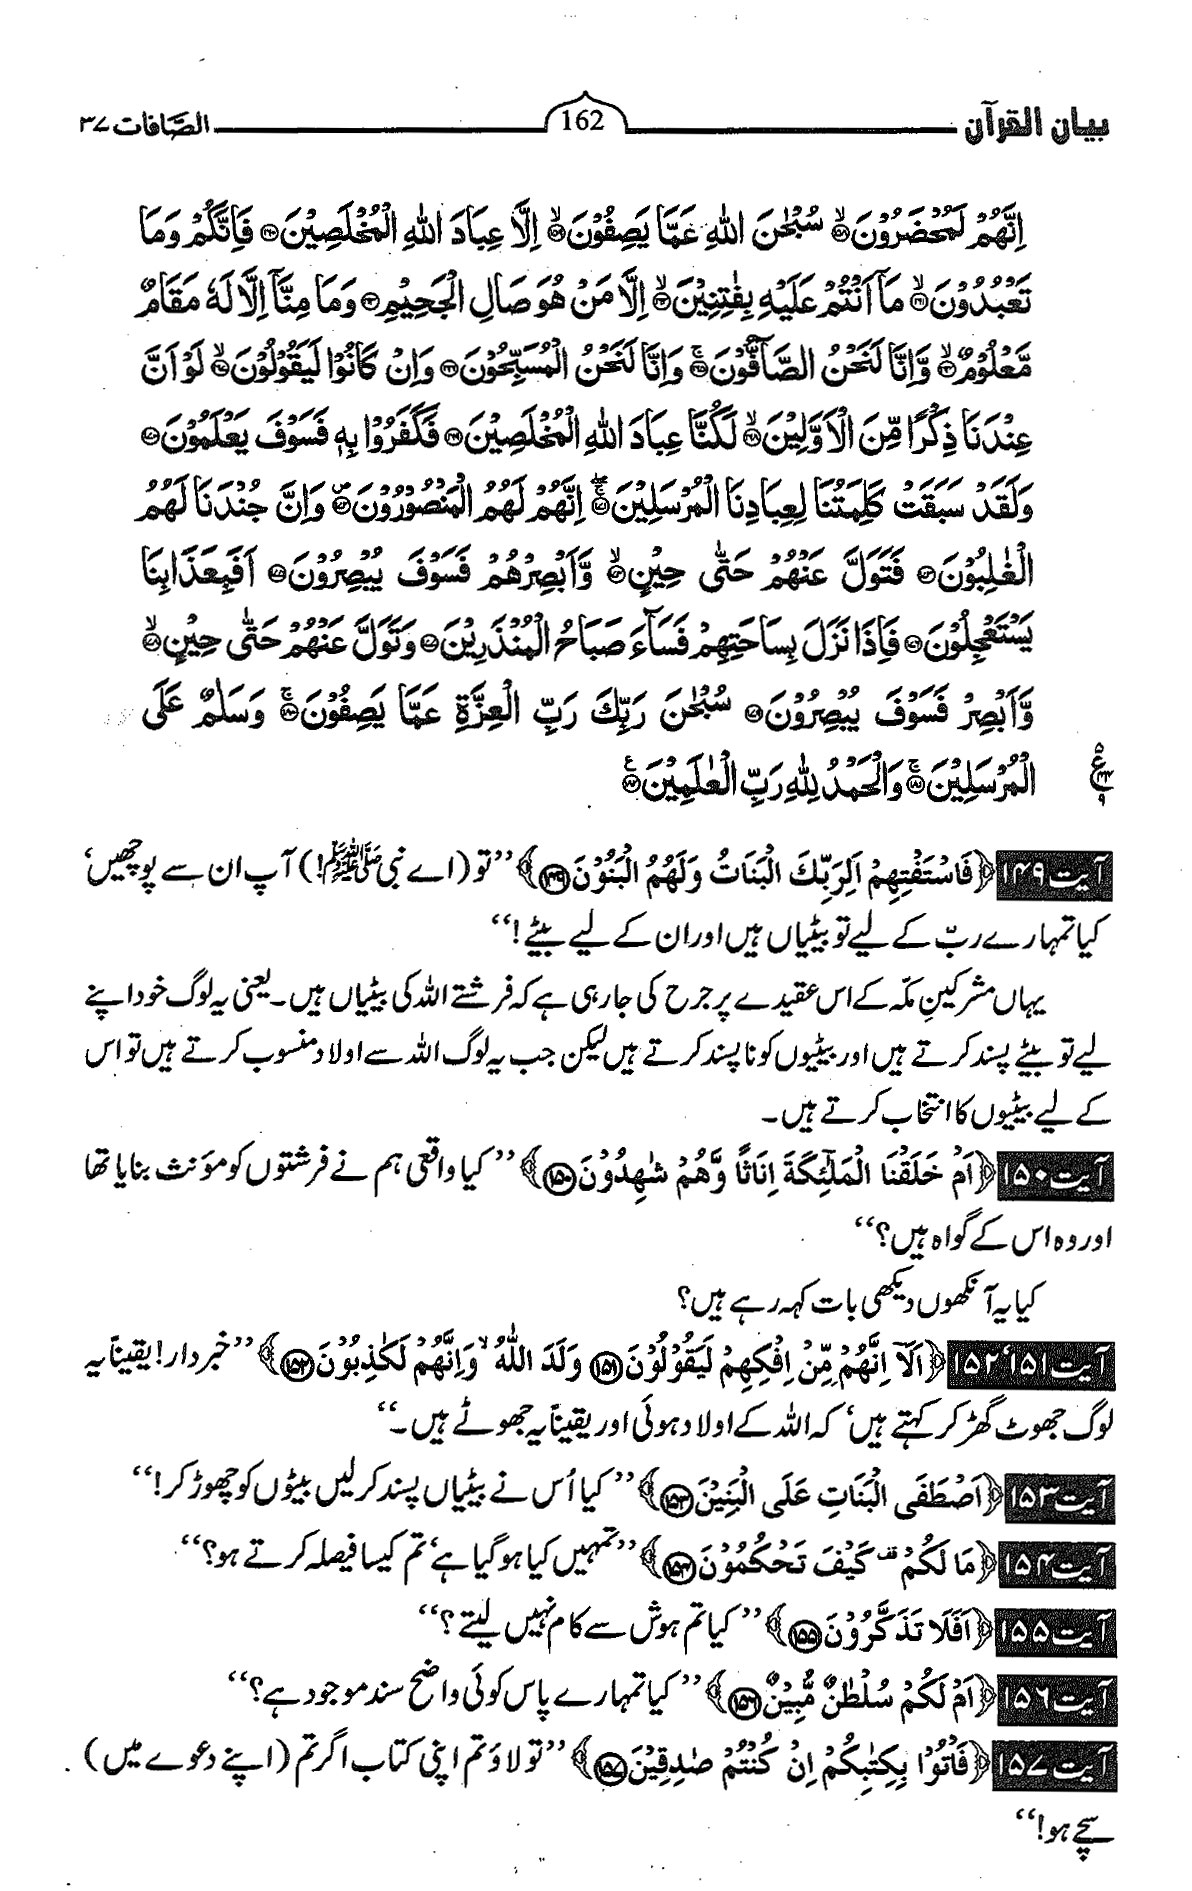 بیان القرآن 162 الصَّافات ۳۷
اِنَّهُمْ لَمُحْضَرُوْنَ ۝۱۵۸ۙ سُبْحٰنَ اللّٰهِ عَمَّا يَصِفُوْنَ ۝۱۵۹ۙ اِلَّا عِبَادَ اللّٰهِ الْمُخْلَصِيْنَ ۝۱۶۰ فَاِنَّكُمْ وَمَا
تَعْبُدُوْنَ ۝۱۶۱ۙ مَآ اَنْتُمْ عَلَيْهِ بِفٰتِنِيْنَ ۝۱۶۲ۙ اِلَّا مَنْ هُوَ صَالِ الْجَحِيْمِ ۝۱۶۳ وَمَا مِنَّآ اِلَّا لَهٗ مَقَامٌ
مَّعْلُوْمٌ ۝۱۶۴ۙ وَّاِنَّا لَنَحْنُ الصَّآفُّوْنَ ۝۱۶۵ۚ وَاِنَّا لَنَحْنُ الْمُسَبِّحُوْنَ ۝۱۶۶ وَاِنْ كَانُوْا لَيَقُوْلُوْنَ ۝۱۶۷ۙ لَوْ اَنَّ
عِنْدَنَا ذِكْرًا مِّنَ الْاَوَّلِيْنَ ۝۱۶۸ۙ لَكُنَّا عِبَادَ اللّٰهِ الْمُخْلَصِيْنَ ۝۱۶۹ فَكَفَرُوْا بِهٖ فَسَوْفَ يَعْلَمُوْنَ ۝۱۷۰
وَلَقَدْ سَبَقَتْ كَلِمَتُنَا لِعِبَادِنَا الْمُرْسَلِيْنَ ۝۱۷۱ۚۖ اِنَّهُمْ لَهُمُ الْمَنْصُوْرُوْنَ ۝۱۷۲۠ وَاِنَّ جُنْدَنَا لَهُمُ
الْغٰلِبُوْنَ ۝۱۷۳ فَتَوَلَّ عَنْهُمْ حَتّٰى حِيْنٍ ۝۱۷۴ۙ وَّاَبْصِرْهُمْ فَسَوْفَ يُبْصِرُوْنَ ۝۱۷۵ اَفَبِعَذَابِنَا
يَسْتَعْجِلُوْنَ ۝۱۷۶ فَاِذَا نَزَلَ بِسَاحَتِهِمْ فَسَآءَ صَبَاحُ الْمُنْذَرِيْنَ ۝۱۷۷ وَتَوَلَّ عَنْهُمْ حَتّٰى حِيْنٍ ۝۱۷۸ۙ
وَّاَبْصِرْ فَسَوْفَ يُبْصِرُوْنَ ۝۱۷۹ سُبْحٰنَ رَبِّكَ رَبِّ الْعِزَّةِ عَمَّا يَصِفُوْنَ ۝۱۸۰ۚ وَسَلٰمٌ عَلَى
الْمُرْسَلِيْنَ ۝۱۸۱ۚ وَالْحَمْدُ لِلّٰهِ رَبِّ الْعٰلَمِيْنَ ۝۱۸۲ۧ
آیت ۱۴۹ ﴿فَاسْتَفْتِهِمْ اَلِرَبِّكَ الْبَنَاتُ وَلَهُمُ الْبَنُوْنَ ۝۱۴۹﴾ ’’تو (اے نبی ﷺ!) آپ ان سے پوچھیں‘
کیا تمہارے ربّ کے لیے تو بیٹیاں ہیں اور ان کے لیے بیٹے!‘‘
یہاں مشرکینِ مکّہ کے اس عقیدے پر جرح کی جا رہی ہے کہ فرشتے اللہ کی بیٹیاں ہیں۔ یعنی یہ لوگ خود اپنے
لیے تو بیٹے پسند کرتے ہیں اور بیٹیوں کو نا پسند کرتے ہیں لیکن جب یہ لوگ اللہ سے اولاد منسوب کرتے ہیں تو اس
کے لیے بیٹیوں کا انتخاب کرتے ہیں۔
آیت ۱۵۰ ﴿اَمْ خَلَقْنَا الْمَلٰٓئِكَةَ اِنَاثًا وَّهُمْ شٰهِدُوْنَ ۝۱۵۰﴾ ’’کیا واقعی ہم نے فرشتوں کو مؤنث بنایا تھا
اور وہ اس کے گواہ ہیں؟‘‘
کیا یہ آنکھوں دیکھی بات کہہ رہے ہیں؟
آیت ۱۵۱‘۱۵۲ ﴿اَلَآ اِنَّهُمْ مِّنْ اِفْكِهِمْ لَيَقُوْلُوْنَ ۝۱۵۱ وَلَدَ اللّٰهُ ۙ وَاِنَّهُمْ لَكٰذِبُوْنَ ۝۱۵۲﴾ ’’خبردار! یقیناً یہ
لوگ جھوٹ گھڑ کر کہتے ہیں‘ کہ اللہ کے اولاد ہوئی اور یقیناً یہ جھوٹے ہیں۔‘‘
آیت ۱۵۳ ﴿اَصْطَفَى الْبَنَاتِ عَلَى الْبَنِيْنَ ۝۱۵۳﴾ ’’کیا اُس نے بیٹیاں پسند کر لیں بیٹوں کو چھوڑ کر!‘‘
آیت ۱۵۴ ﴿مَا لَكُمْ ۣ كَيْفَ تَحْكُمُوْنَ ۝۱۵۴﴾ ’’تمہیں کیا ہو گیا ہے‘ تم کیسا فیصلہ کرتے ہو؟‘‘
آیت ۱۵۵ ﴿اَفَلَا تَذَكَّرُوْنَ ۝۱۵۵﴾ ’’کیا تم ہوش سے کام نہیں لیتے؟‘‘
آیت ۱۵۶ ﴿اَمْ لَكُمْ سُلْطٰنٌ مُّبِيْنٌ ۝۱۵۶﴾ ’’کیا تمہارے پاس کوئی واضح سند موجود ہے؟‘‘
آیت ۱۵۷ ﴿فَاْتُوْا بِكِتٰبِكُمْ اِنْ كُنْتُمْ صٰدِقِيْنَ ۝۱۵۷﴾ ’’تو لاؤ تم اپنی کتاب اگر تم (اپنے دعوے میں)
سچے ہو!‘‘